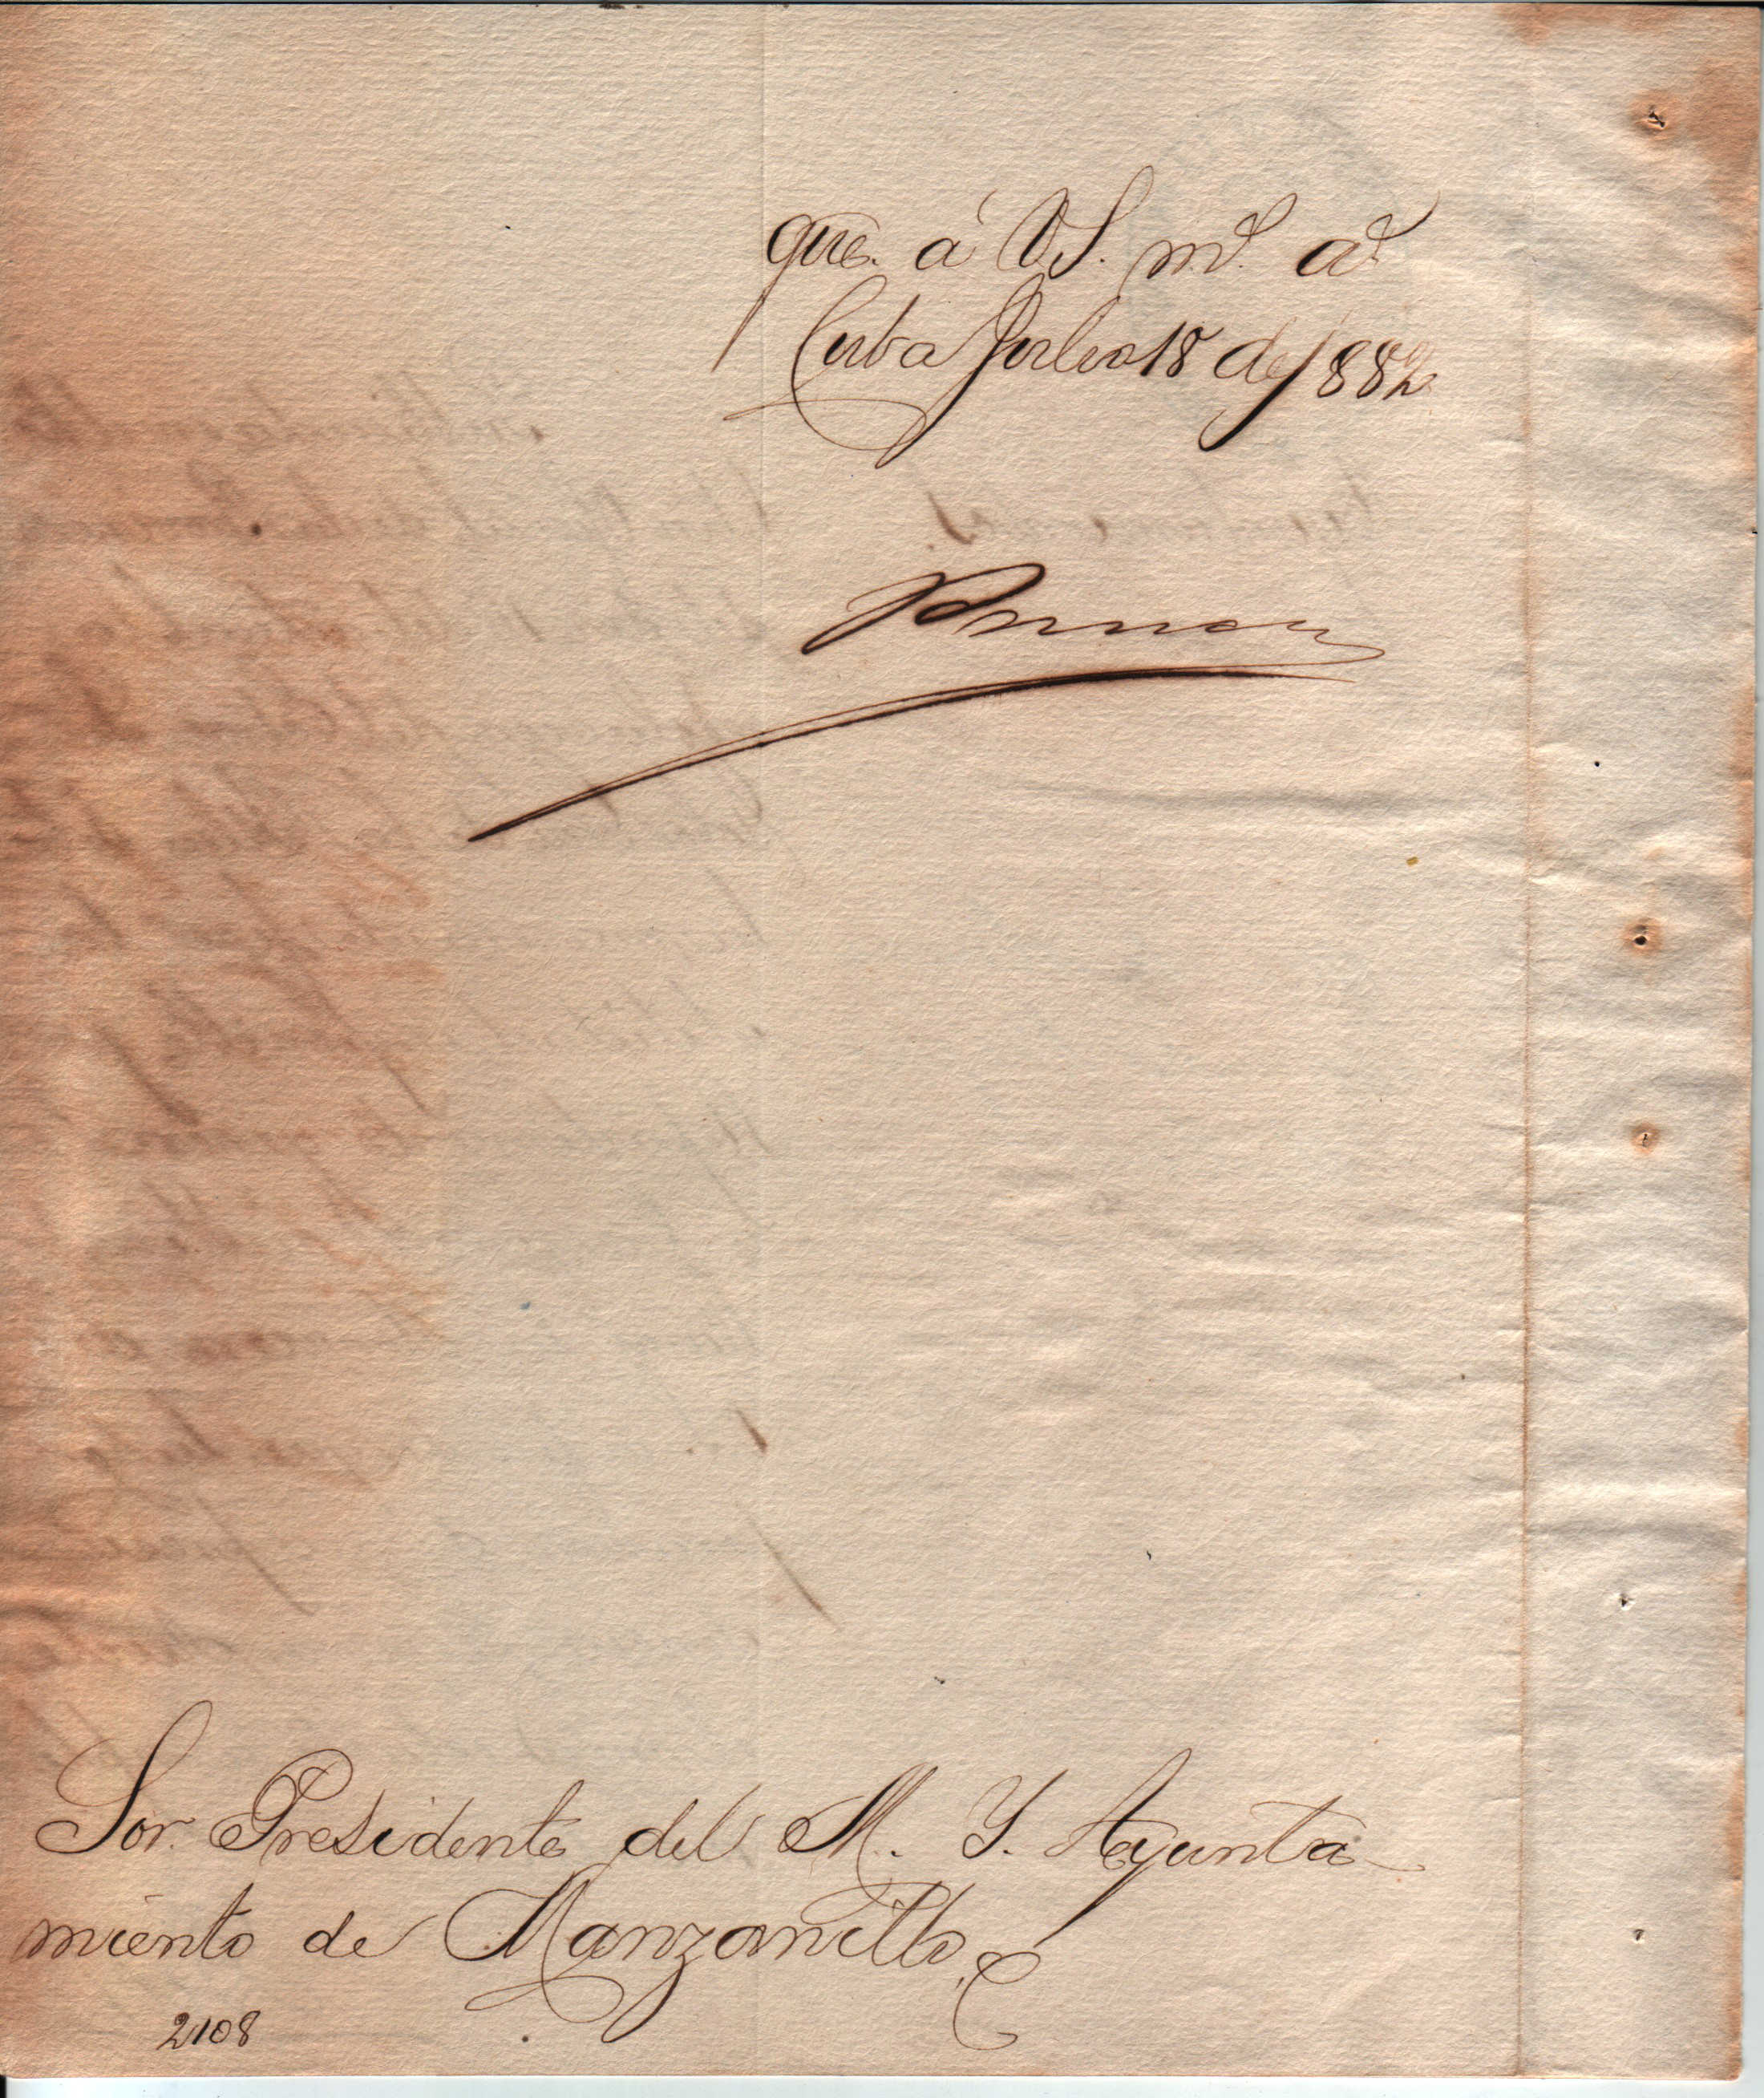 gue. á V.S. m.s a.s
Cuba Julio 18 de 1882
Sor. Presidente del M. Y. Ayunta-
miento de Manzanillo.
2108